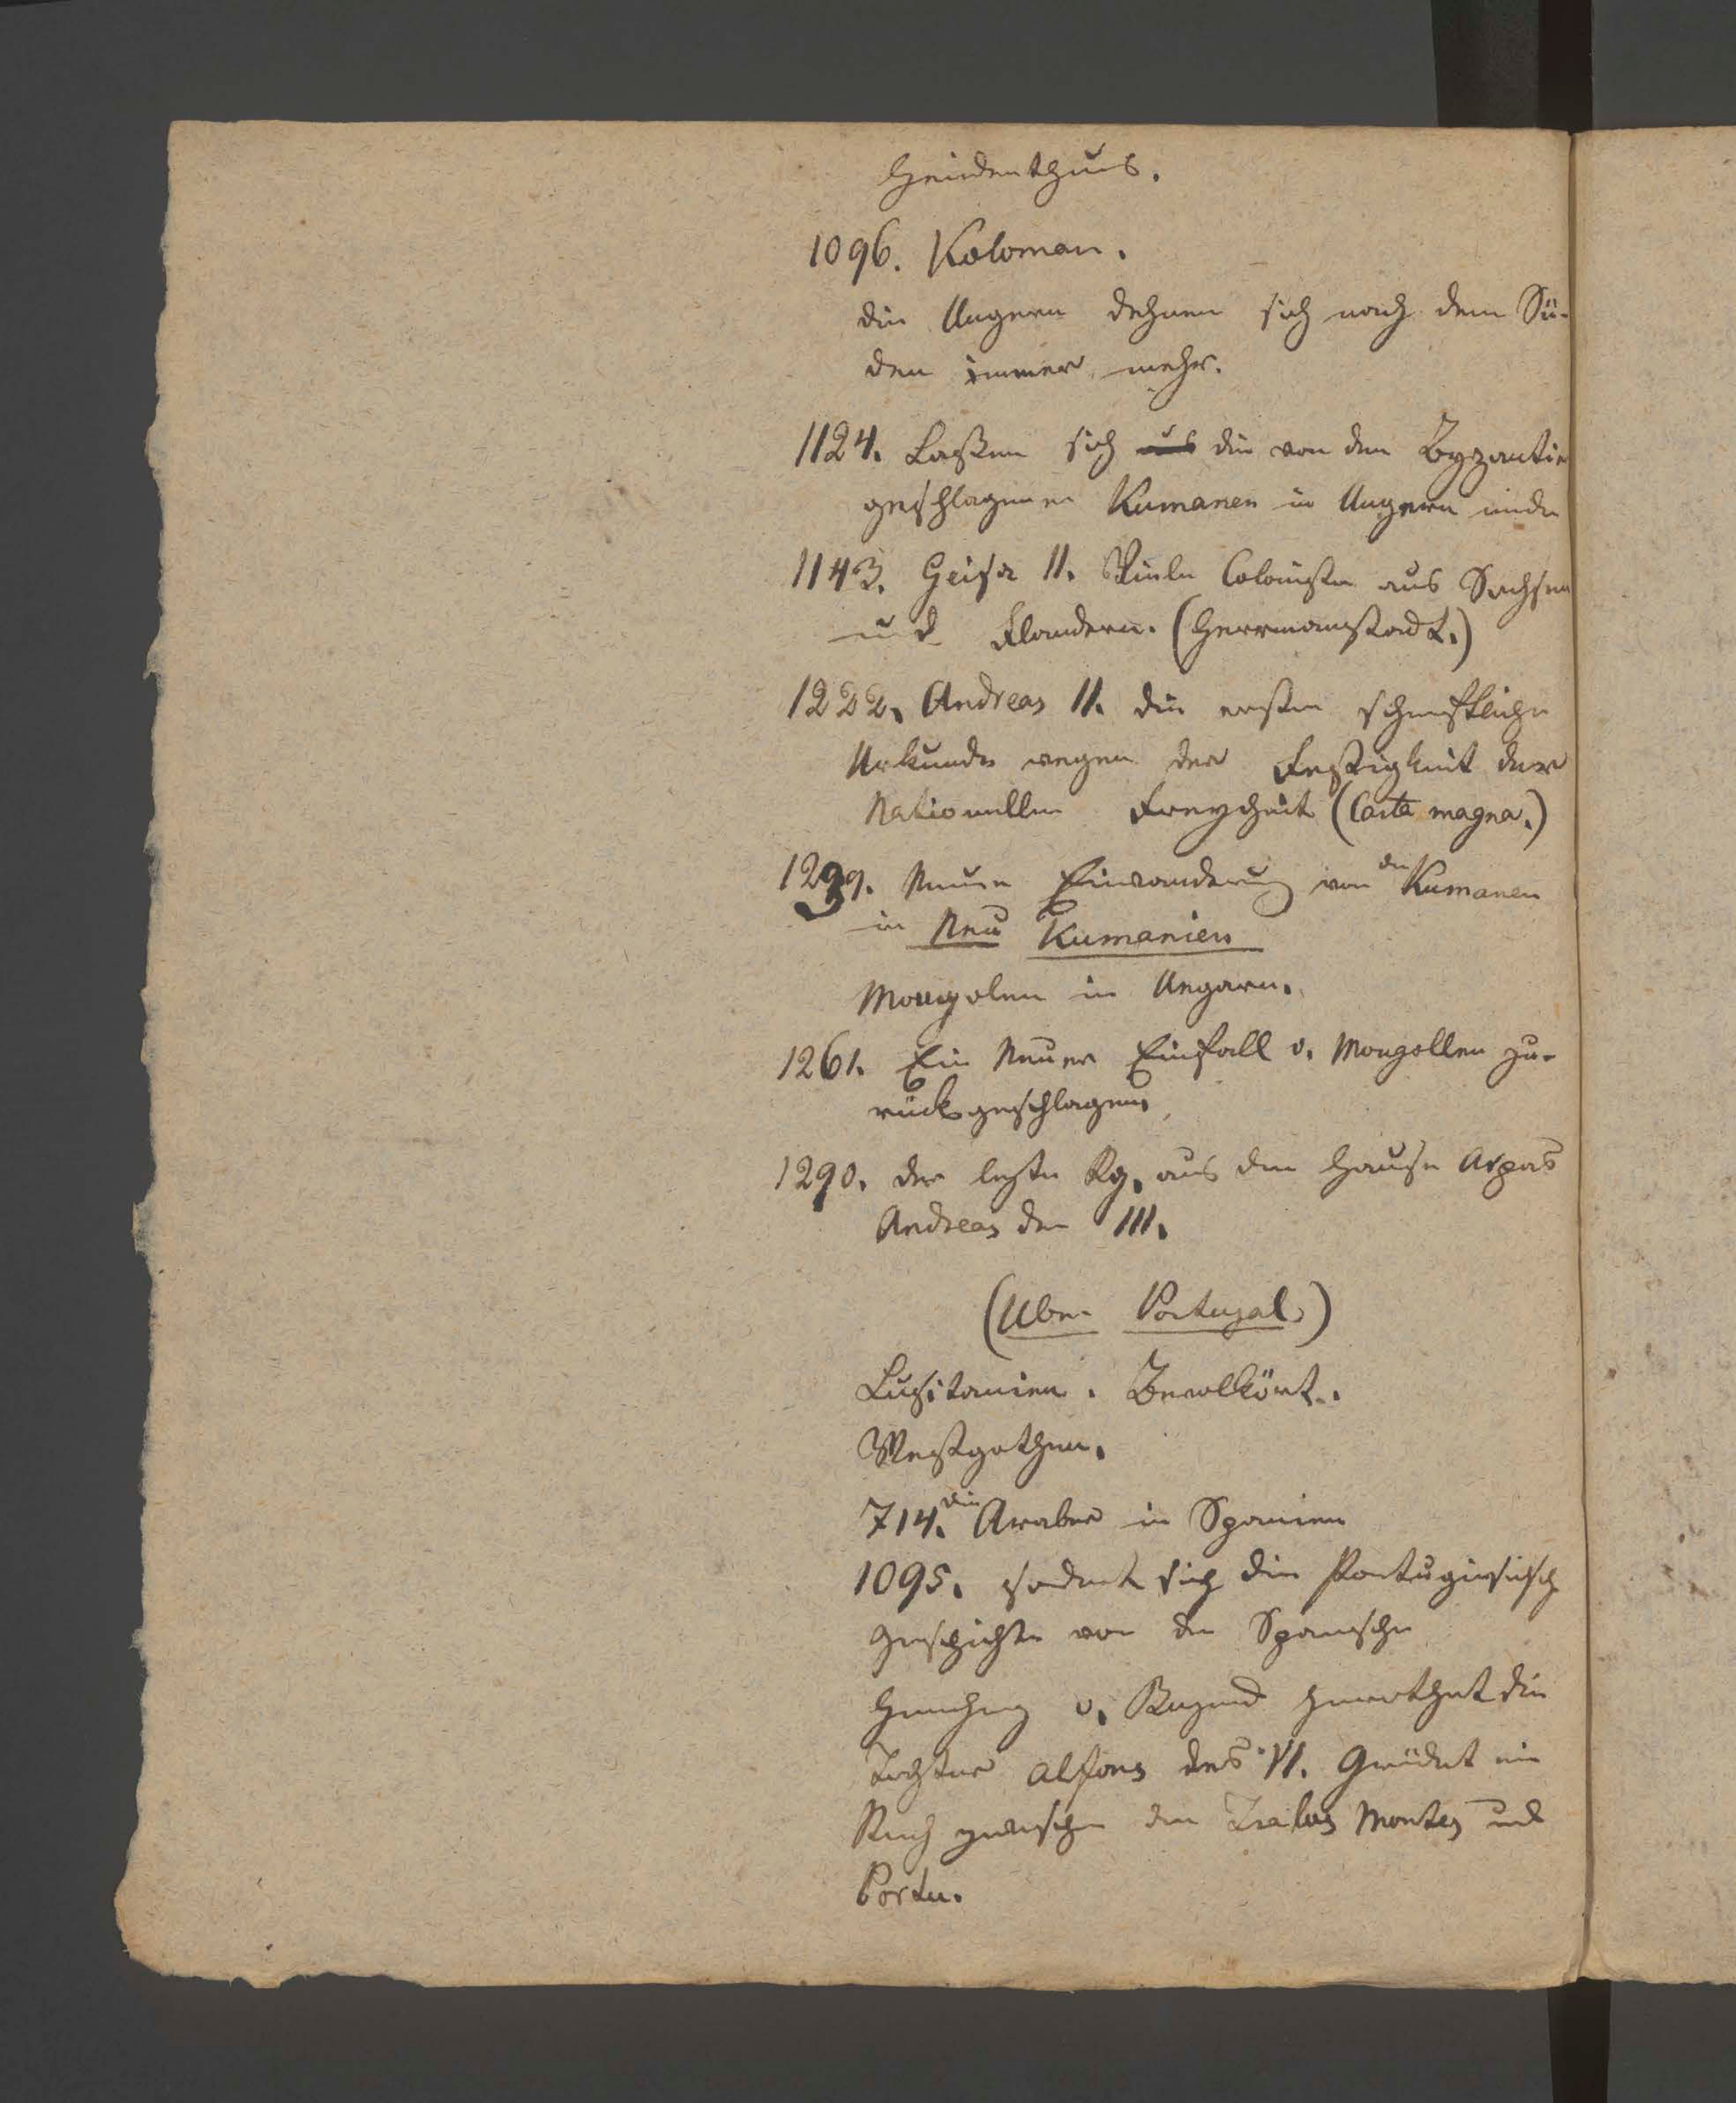 Heidenthus.
1096. Koloman.
die Ungern dehnen sich nach dem Sü-
den immer mehr.
1124. Laßen sich die von den Byzantin
geschlagenen Kumanen in Ungern nieder
1143. Geisa II. Viele Colonisten aus Sachsen
und Flandern. (Herrmanstadt.)
1222. Andreas II. die ersten schriftliche
Urkunde wegen der Festigkeit der
Nationellen Freyheit (Carta magna.)
1239. Neuen Einwanderung von den Kumanen
in Neu Kumanien
Mongolen in Ungarn.
1261. Ein Neuer Einfall v. Mongollen zu-
rückgeschlagen,
1290. der letzte Kg. aus dem Hause Arpas
Andreas der III.
(Uber Portugal.)
Lusitanien. Bevolkört.
Westgothen.
714. die Araber in Spanien
1095. sondert sich die Portugiesisch
Geschichte von der Spanische
v. Burgund heirathet die
Tochter Alfons des VI. Gründet ein
Reich zwischen den Tralos Montes und
Portu.